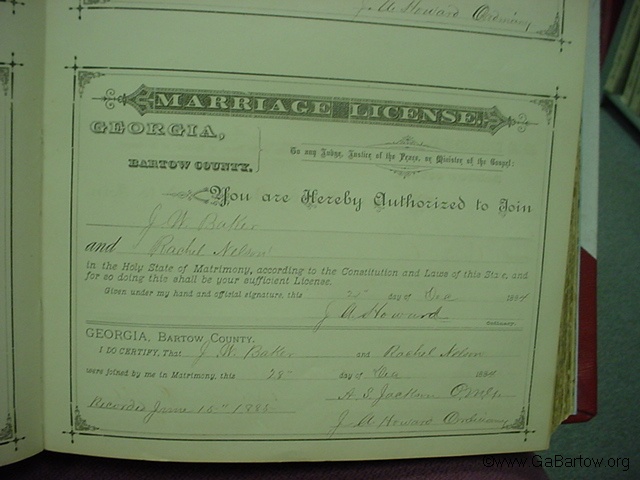 J. A. Howard Ordinary
MARRIAGE LICENSE.
GEORGIA,
BARTOW COUNTY.
To any Judge, Justice of the Peace, or Minister of the Gospel:
You are Hereby Authorized to Join
J. W. Baker
and Rachel Nelson
in the Holy State of Matrimony, according to the Constitution and Laws of this State, and
for so doing this shall be your sufficient License.
Given under my hand and official signature, this day of Dec 1884
J. A. Howard
Ordinary.
GEORGIA, BARTOW COUNTY.
I DO CERTIFY, That J. W. Baker and Rachel Nelson
were joined by me in Matrimony, this 28th day of Dec 1884
Jackson
Recorded June 15th 1885
J. A. Howard Ordinary
©www.GaBartow.org